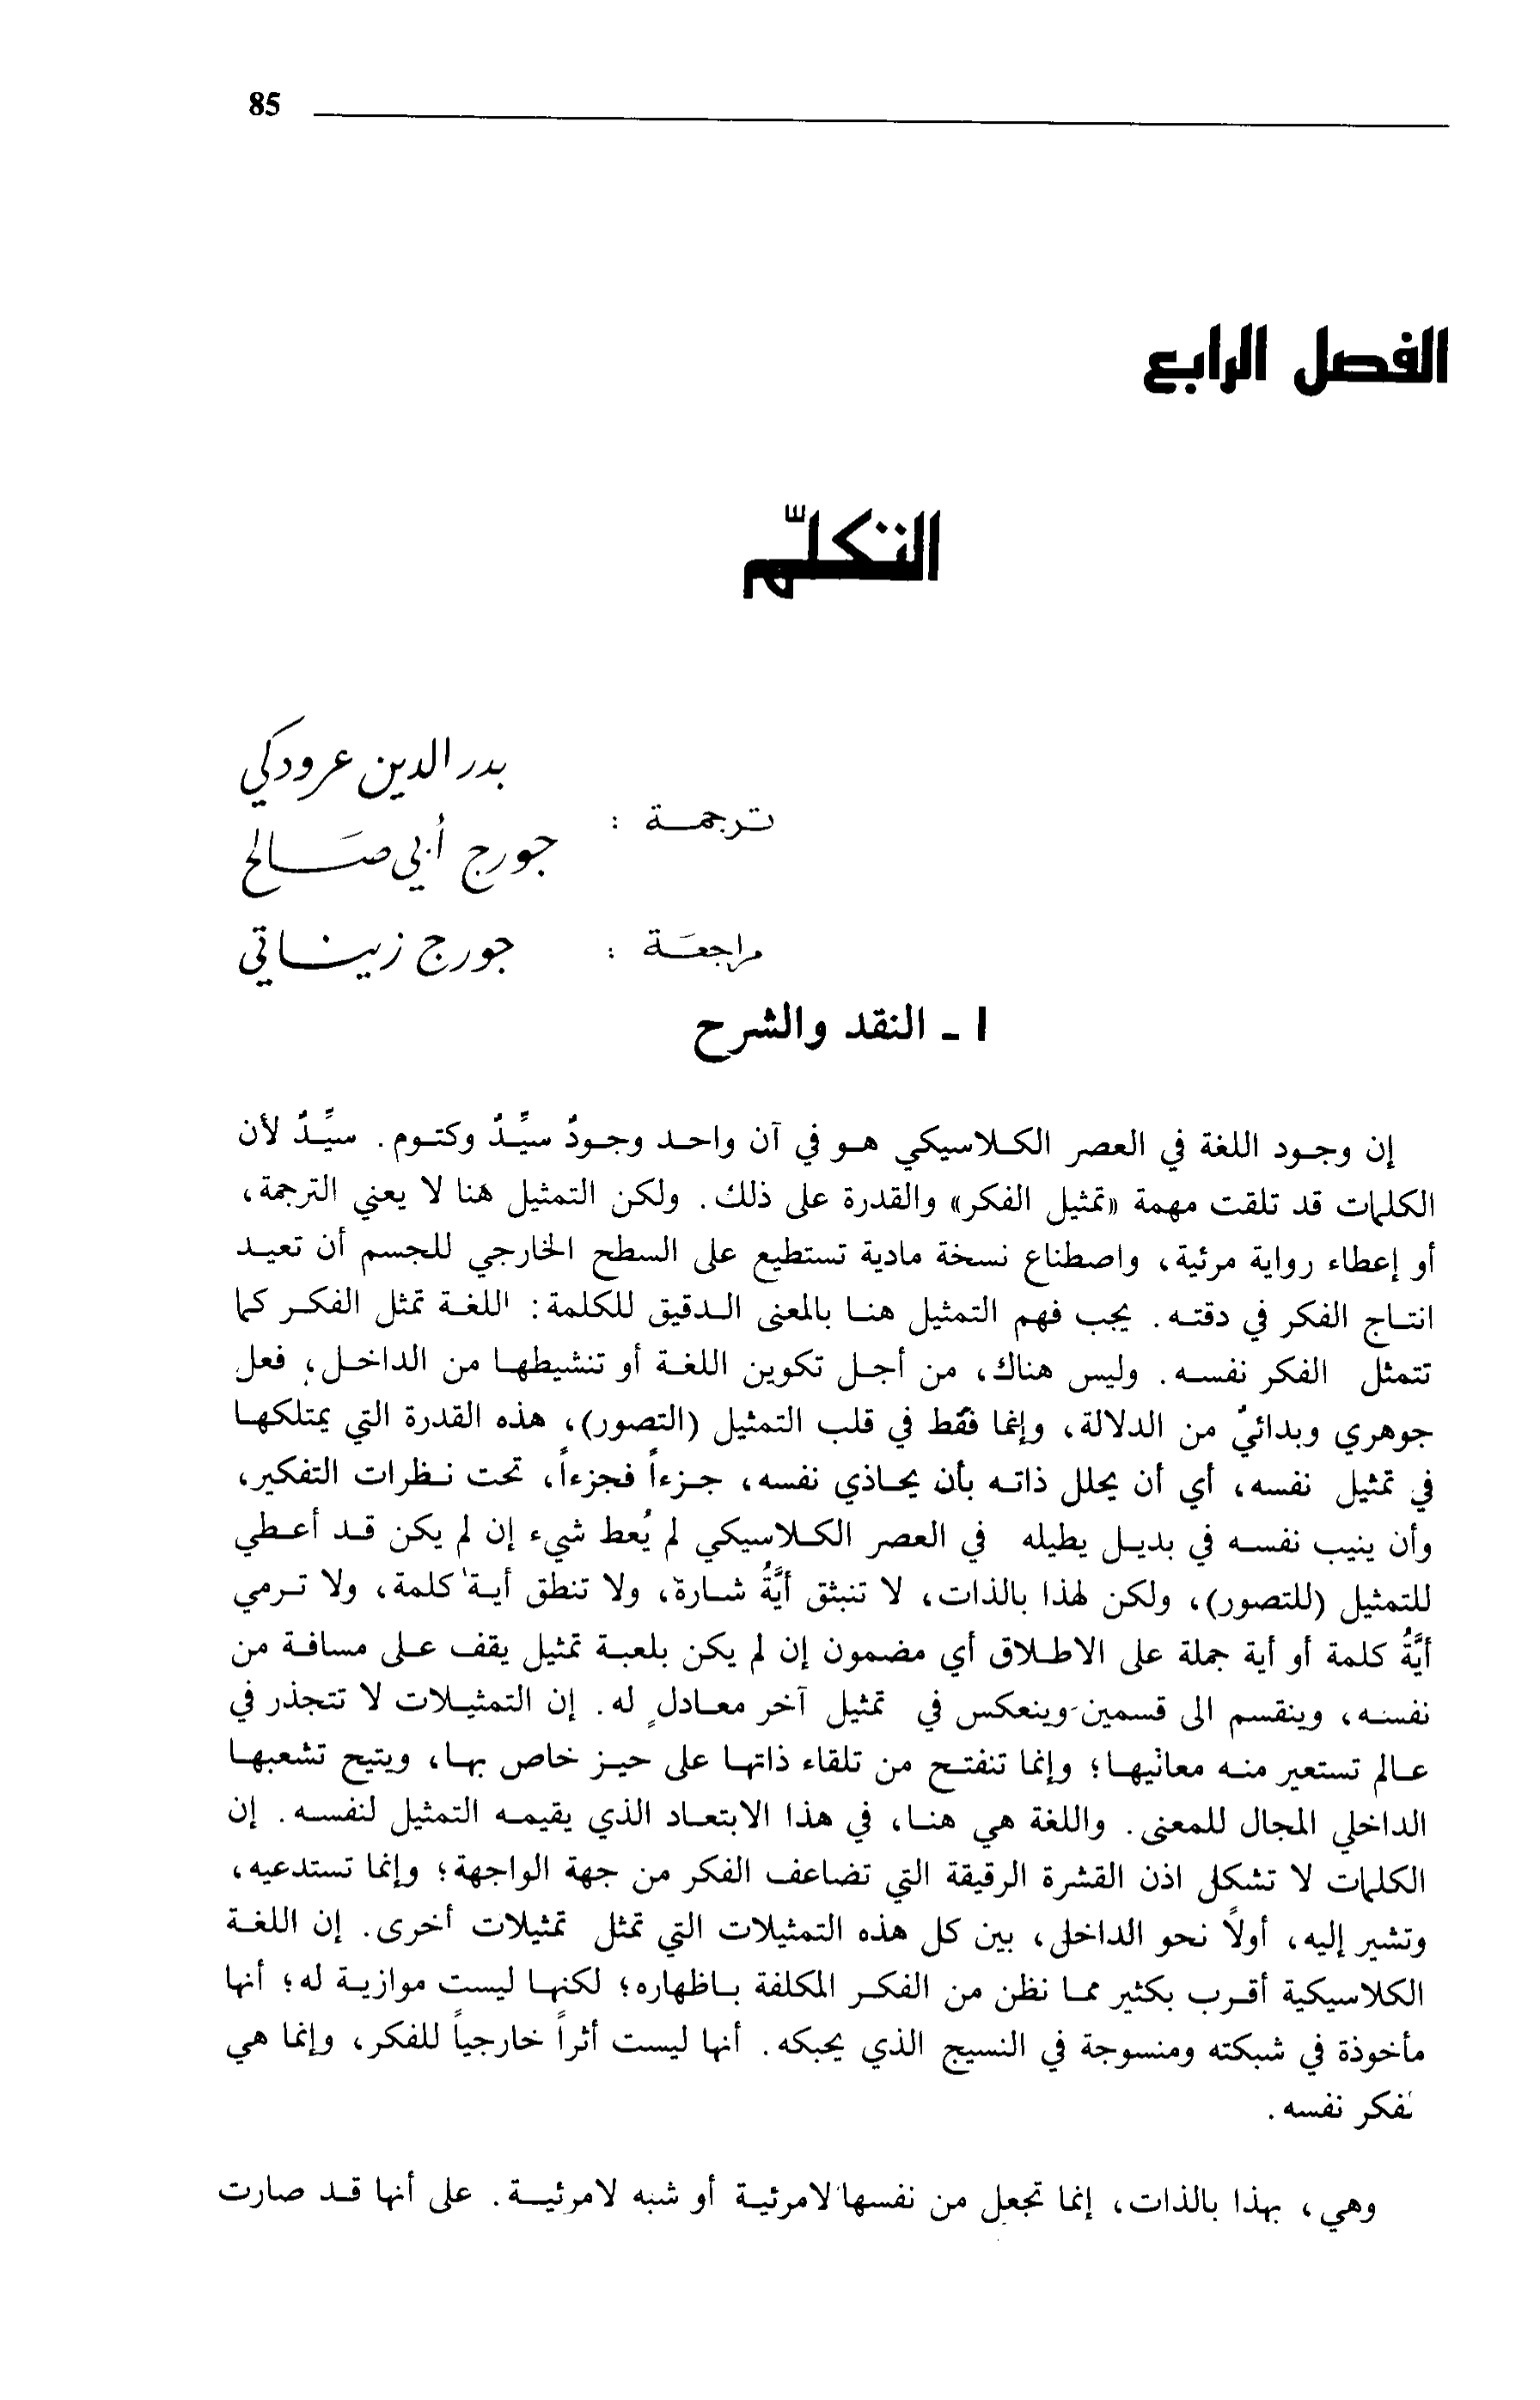 85
الفصل الرابع
التكلّم
بدر الدين عرودكي
ترجمة :
جورج أبي صالح
مراجعة : جورج زيناتي
I ـ النقد والشرح
إن وجود اللغة في العصر الكلاسيكي هو في آن واحد وجودٌ سيِّدٌ وكتوم . سيِّدٌ لأن
الكلمات قد تلقت مهمة «تمثيل الفكر» والقدرة على ذلك . ولكن التمثيل هنا لا يعني الترجمة،
أو إعطاء رواية مرئية، واصطناع نسخة مادية تستطيع على السطح الخارجي للجسم أن تعيد
انتاج الفكر في دقته . يجب فهم التمثيل هنا بالمعنى الدقيق للكلمة : اللغة تمثل الفكر كما
تتمثل الفكر نفسه . وليس هناك، من أجل تكوين اللغة أو تنشيطها من الداخل، فعل
جوهري وبدائيٌ من الدلالة، وإنما فقط في قلب التمثيل (التصور)، هذه القدرة التي يمتلكها
في تمثيل نفسه، أي أن يحلل ذاته بأن يحاذي نفسه، جزءاً فجزءاً، تحت نظرات التفكير،
وأن ينيب نفسه في بديل يطيله في العصر الكلاسيكي لم يُعط شيء إن لم يكن قد أعطي
للتمثيل (للتصور)، ولكن لهذا بالذات، لا تنبثق أيَّةُ شارة، ولا تنطق أية كلمة، ولا ترمي
أيَّةُ كلمة أو أية جملة على الاطلاق أي مضمون إن لم يكن بلعبة تمثيل يقف على مسافة من
نفسه، وينقسم الى قسمين وينعكس في تمثيل آخر معادلٍ له . إن التمثيلات لا تتجذر في
عالم تستعير منه معانيها؛ وإنما تنفتح من تلقاء ذاتها على حيز خاص بها، ويتيح تشعبها
الداخلي المجال للمعنى . واللغة هي هنا، في هذا الابتعاد الذي يقيمه التمثيل لنفسه . إن
الكلمات لا تشكل اذن القشرة الرقيقة التي تضاعف الفكر من جهة الواجهة؛ وإنما تستدعيه،
وتشير إليه، أولاً نحو الداخل، بين كل هذه التمثيلات التي تمثل تمثيلات أخرى . إن اللغة
الكلاسيكية أقرب بكثير مما نظن من الفكر المكلفة باظهاره؛ لكنها ليست موازية له؛ أنها
مأخوذة في شبكته ومنسوجة في النسيج الذي يحبكه . أنها ليست أثراً خارجياً للفكر، وإنما هي
لفكر نفسه .
وهي، بهذا بالذات، إنما تجعل من نفسها لامرئية أو شبه لامرئية . على أنها قد صارت